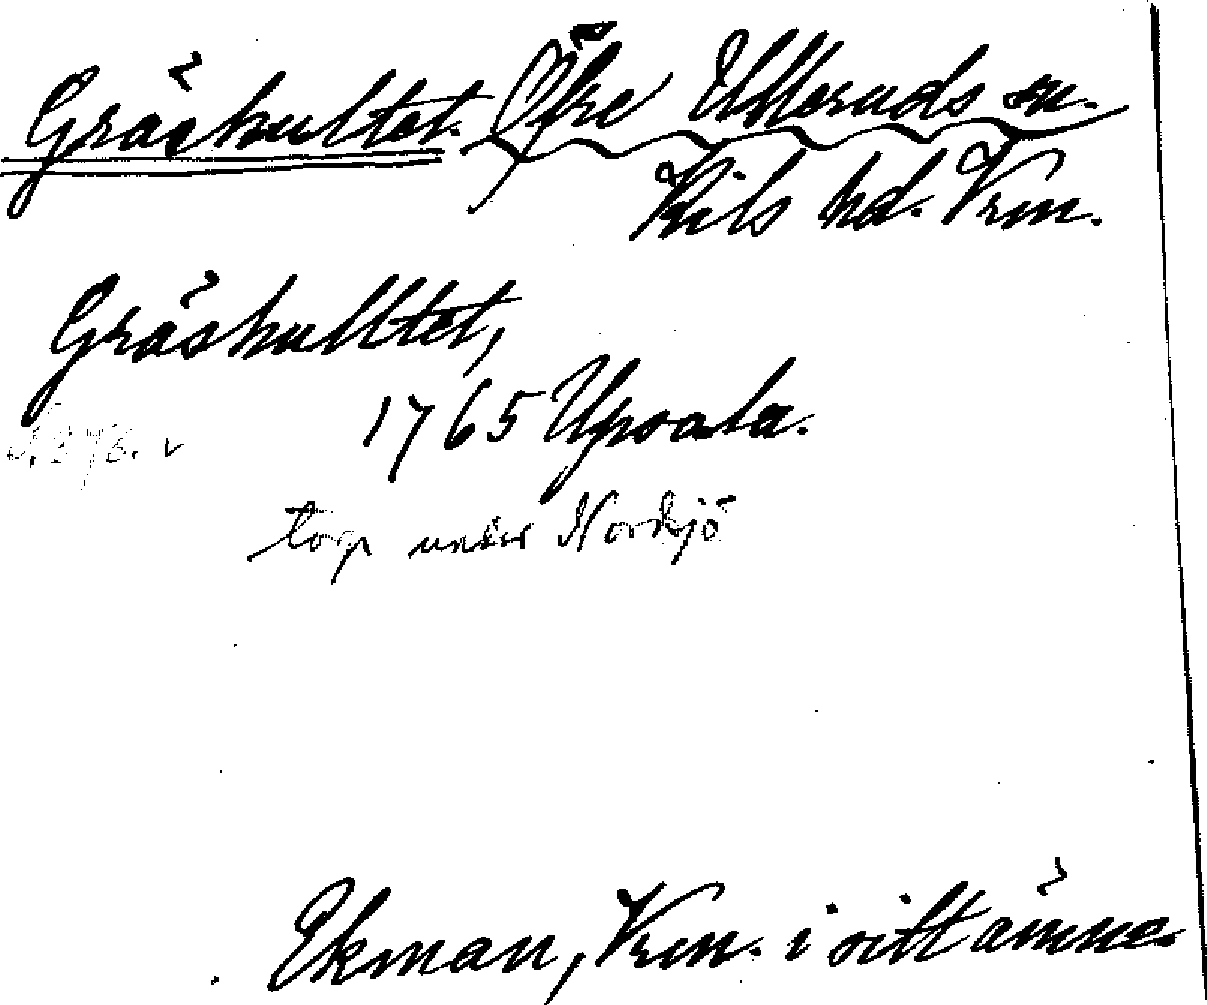 Gräskultet. Öfre Ulleruds sn.
Kils hd. Vrm.
Gräskulltet,
1765 Upsala.
torp under Nordsjö
Ekman, Vrm. i sitt ämne.